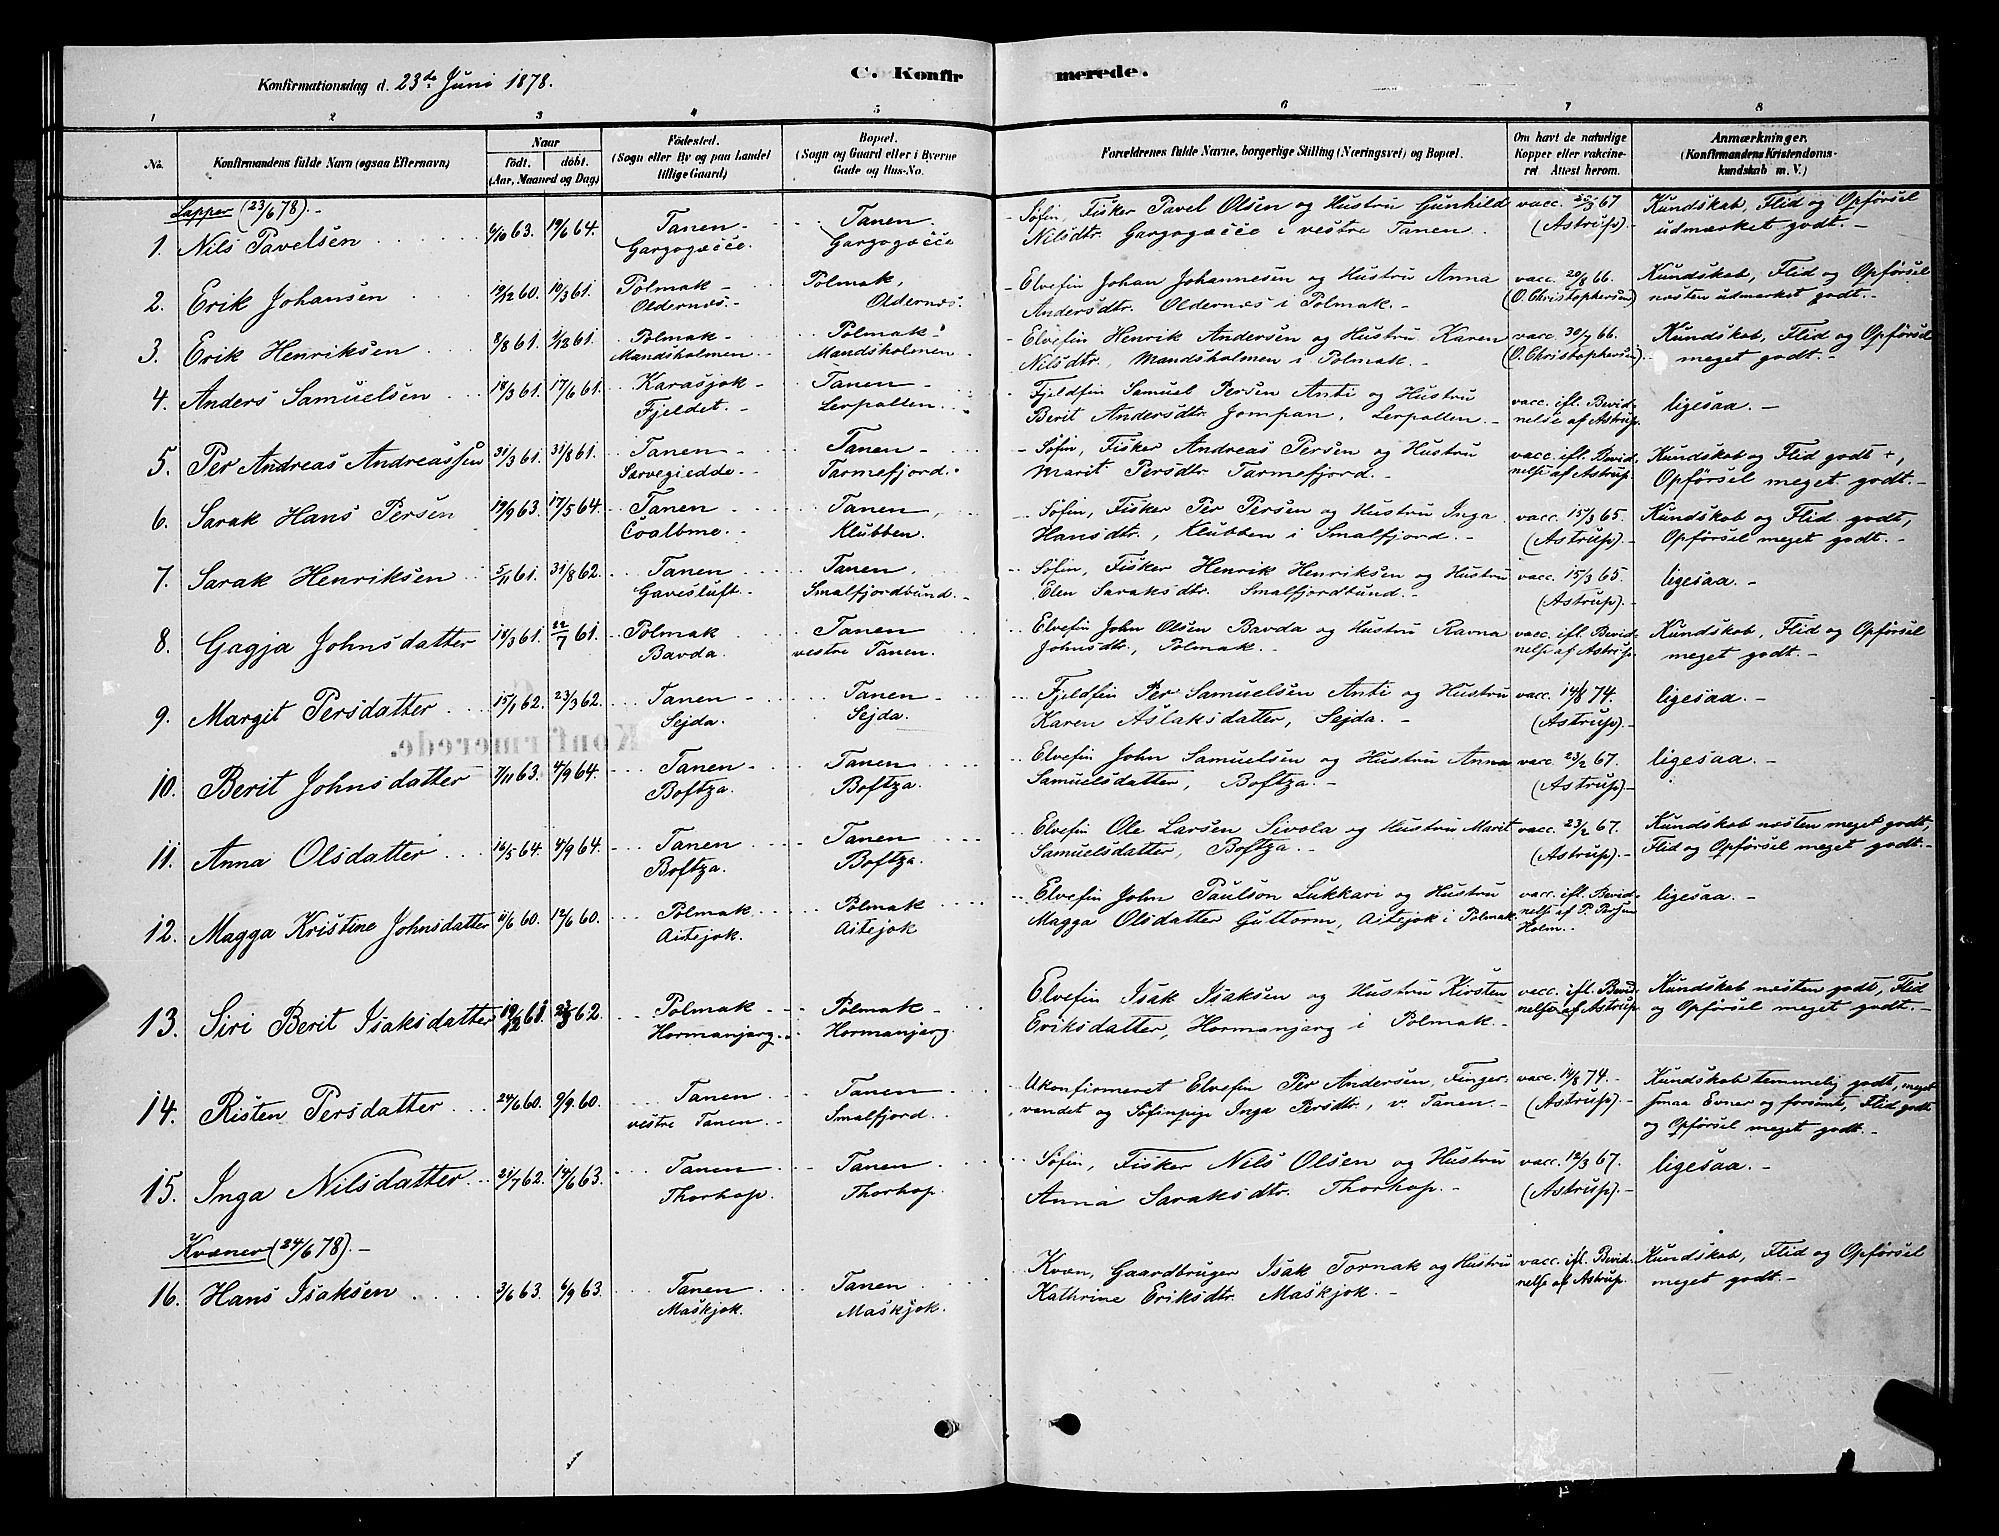 Konfirmationsdag d. 23de Juni 1878.
C. Konfirmerede.
1 2 3 4 5 6 7 8
No. Konfirmandens fulde Navn (ogsaa Efternavn) Naar født. døbt. (Aar, Maaned og Dag) Fødested. (Sogn eller By og paa Landet tillige Gaard) Bopæl. (Sogn og Gaard eller i Byerne Gade og Hus-No. Forældrenes fulde Navne, borgerlige Stilling (Næringsvei) og Bopæl. Om havt de naturlige Kopper eller vakcineret. Attest herom. Anmærkninger. (Konfirmandens Kristendomskundskab m. V.)
Lapper (23/6 78).-
1. Nils Pavelsen 6/10 63. 19/6 64. Tanen - Gargogæčče. Tanen. Gargogæčče
Søfin, Fisker Pavel Olsen og Hustru Gunhild
Nilsdtr. Gargogæčče i vestre Tanen.
vacc. 22/3 67 (Astrup).- Kundskab, Flid og Opførsel udmærket godt.-
2. Erik Johansen 19/12 60. 10/3 61. Polmak - Oldernes.- Polmak, Oldernes.
Elvefin Johan Johannesen og Hustru Anna
Andersdtr. Oldernes i Polmak.-
vacc. 20/8 66. (O. Christophersen) Kundskab, Flid og Opførsel næsten udmærket godt.-
3. Erik Henriksen 8/8 61. 1/12 61. Polmak - Mandsholmen Polmak - Mandsholmen
Elvefin Henrik Andersen og Hustru Karen
Nilsdtr., Mandsholmen i Polmak.-
vacc. 30/7 66. (O. Christophersen). Kundskab, Flid og Opførsel meget godt.-
4. Anders Samuelsen 18/3 61. 17/6 61. Karasjok - Fjeldet.- Tanen - Lerpollen.
Fjeldfin Samuel Persen Anti og Hustru
Berit Andersdtr. Jompan, Lerpollen.-
vacc. ifl. Bevidnelse af Astrup. ligesaa.-
5. Per Andreas Andreassen 31/3 61. 31/8 61. Tanen - Sarvegiedde.- Tanen - Tarmefjord.
Søfin, Fisker Andreas Persen og Hustru
Marit Persdtr. Tarmefjord.-
vacc. ifl. Bevidnelse af Astrup. Kundskab og Flid godt +, Opførsel meget godt.-
6. Sarak Hans Persen 19/9 63. 17/5 64. Tanen - Coalbme.- Tanen, Klubben.
Søfin, Fisker Per Persen og Hustru Inga
Hansdtr., Klubben i Smalfjord.-
vacc. 15/3 65. (Astrup).- Kundskab og Flid godt, Opførsel meget godt.-
7. Sarak Henriksen 5/11 61. 31/8 62. Tanen - Gavesluft.- Tanen, Smalfjordbund.-
Søfin, Fisker Henrik Henriksen og Hustru
Elen Saraksdtr. Smalfjordbund.-
vacc. 15/3 65. (Astrup).- ligesaa.-
8. Gagja Johnsdatter 18/3 61. 22/7 61. Polmak Bavda. Tanen vestre Tanen.
Elvefin John Olsen Bavda og Hustru Ravna
Johnsdtr., Polmak.-
vacc. ifl. Bevidnelse af Astrup. Kundskab, Flid og Opførsel meget godt.-
9. Margit Persdatter 15/1 62. 23/3 62. Tanen - Sejda. Tanen - Sejda.
Fjeldfin Per Samuelsen Anti og Hustru
Karen Aslaksdatter, Sejda.-
vacc. 14/8 74. (Astrup).- ligesaa.-
10. Berit Johnsdatter 7/11 63. 4/9 64. Tanen - Boftza. Tanen Boftza.
Elvefin John Samuelsen og Hustru Anna
Samuelsdatter, Boftza.-
vacc. 23/2 67. (Astrup).- ligesaa.-
11. Anna Olsdatter 16/5 64. 4/9 64. Tanen Boftza. Tanen Boftza.
Elvefin Ole Larsen Sivola og Hustru Marit
Samuelsdatter, Boftza.-
vacc. 23/2 67. (Astrup).- Kundskab næsten meget godt, Flid og Opførsel meget godt.-
12. Magga Kristine Johnsdatter 11/6 60. 12/6 60. Polmak Aitejok. Polmak Aitejok
Elvefin John Paulson Lukkari og Hustru
Magga Olsdatter Guttorm, Aitejok i Polmak.
vacc. ifl. Bevidnelse af P. Persen Holm.- ligesaa.-
13. Siri Berit Isaksdatter 19/12 61. 23/3 62. Polmak - Hormanjarg. Polmak - Hormanjarg.
Elvefin Isak Isaksen og Hustru Kirsten
Eriksdatter, Hormanjarg i Polmak.-
vacc. ifl. Bevidnelse af Astrup. Kundskab næsten godt, Flid og Opførsel meget godt.-
14. Risten Persdatter 24/6 60. 9/9 60. Tanen vestre Tanen. Tanen Smalfjord.
Ukonfirmeret Elvefin Per Andersen, Fingervandet og Søfinpige Inga Persdtr., v. Tanen.-
vacc. 14/8 74. (Astrup).- Kundskab temmelig godt, meget smaa Evner og forsømt, Flid godt og Opførsel meget godt.-
15. Inga Nilsdatter 21/7 62. 14/6 63. Tanen Thorhop. Tanen Thorhop.
Søfin, Fisker Nils Olsen og Hustru
Anna Saraksdtr. Thorhop.-
vacc. 12/3 67. (Astrup).- ligesaa.-
Kvæner (24/6 78).-
16. Hans Isaksen 3/6 63. 6/9 63. Tanen Maskjok. Tanen Maskjok.
Kvæn, Gaardbruger Isak Tornak og Hustru
Kathrine Eriksdtr. Maskjok.-
vacc. ifl. Bevidnelse af Astrup. Kundskab, Flid og Opførsel meget godt.-